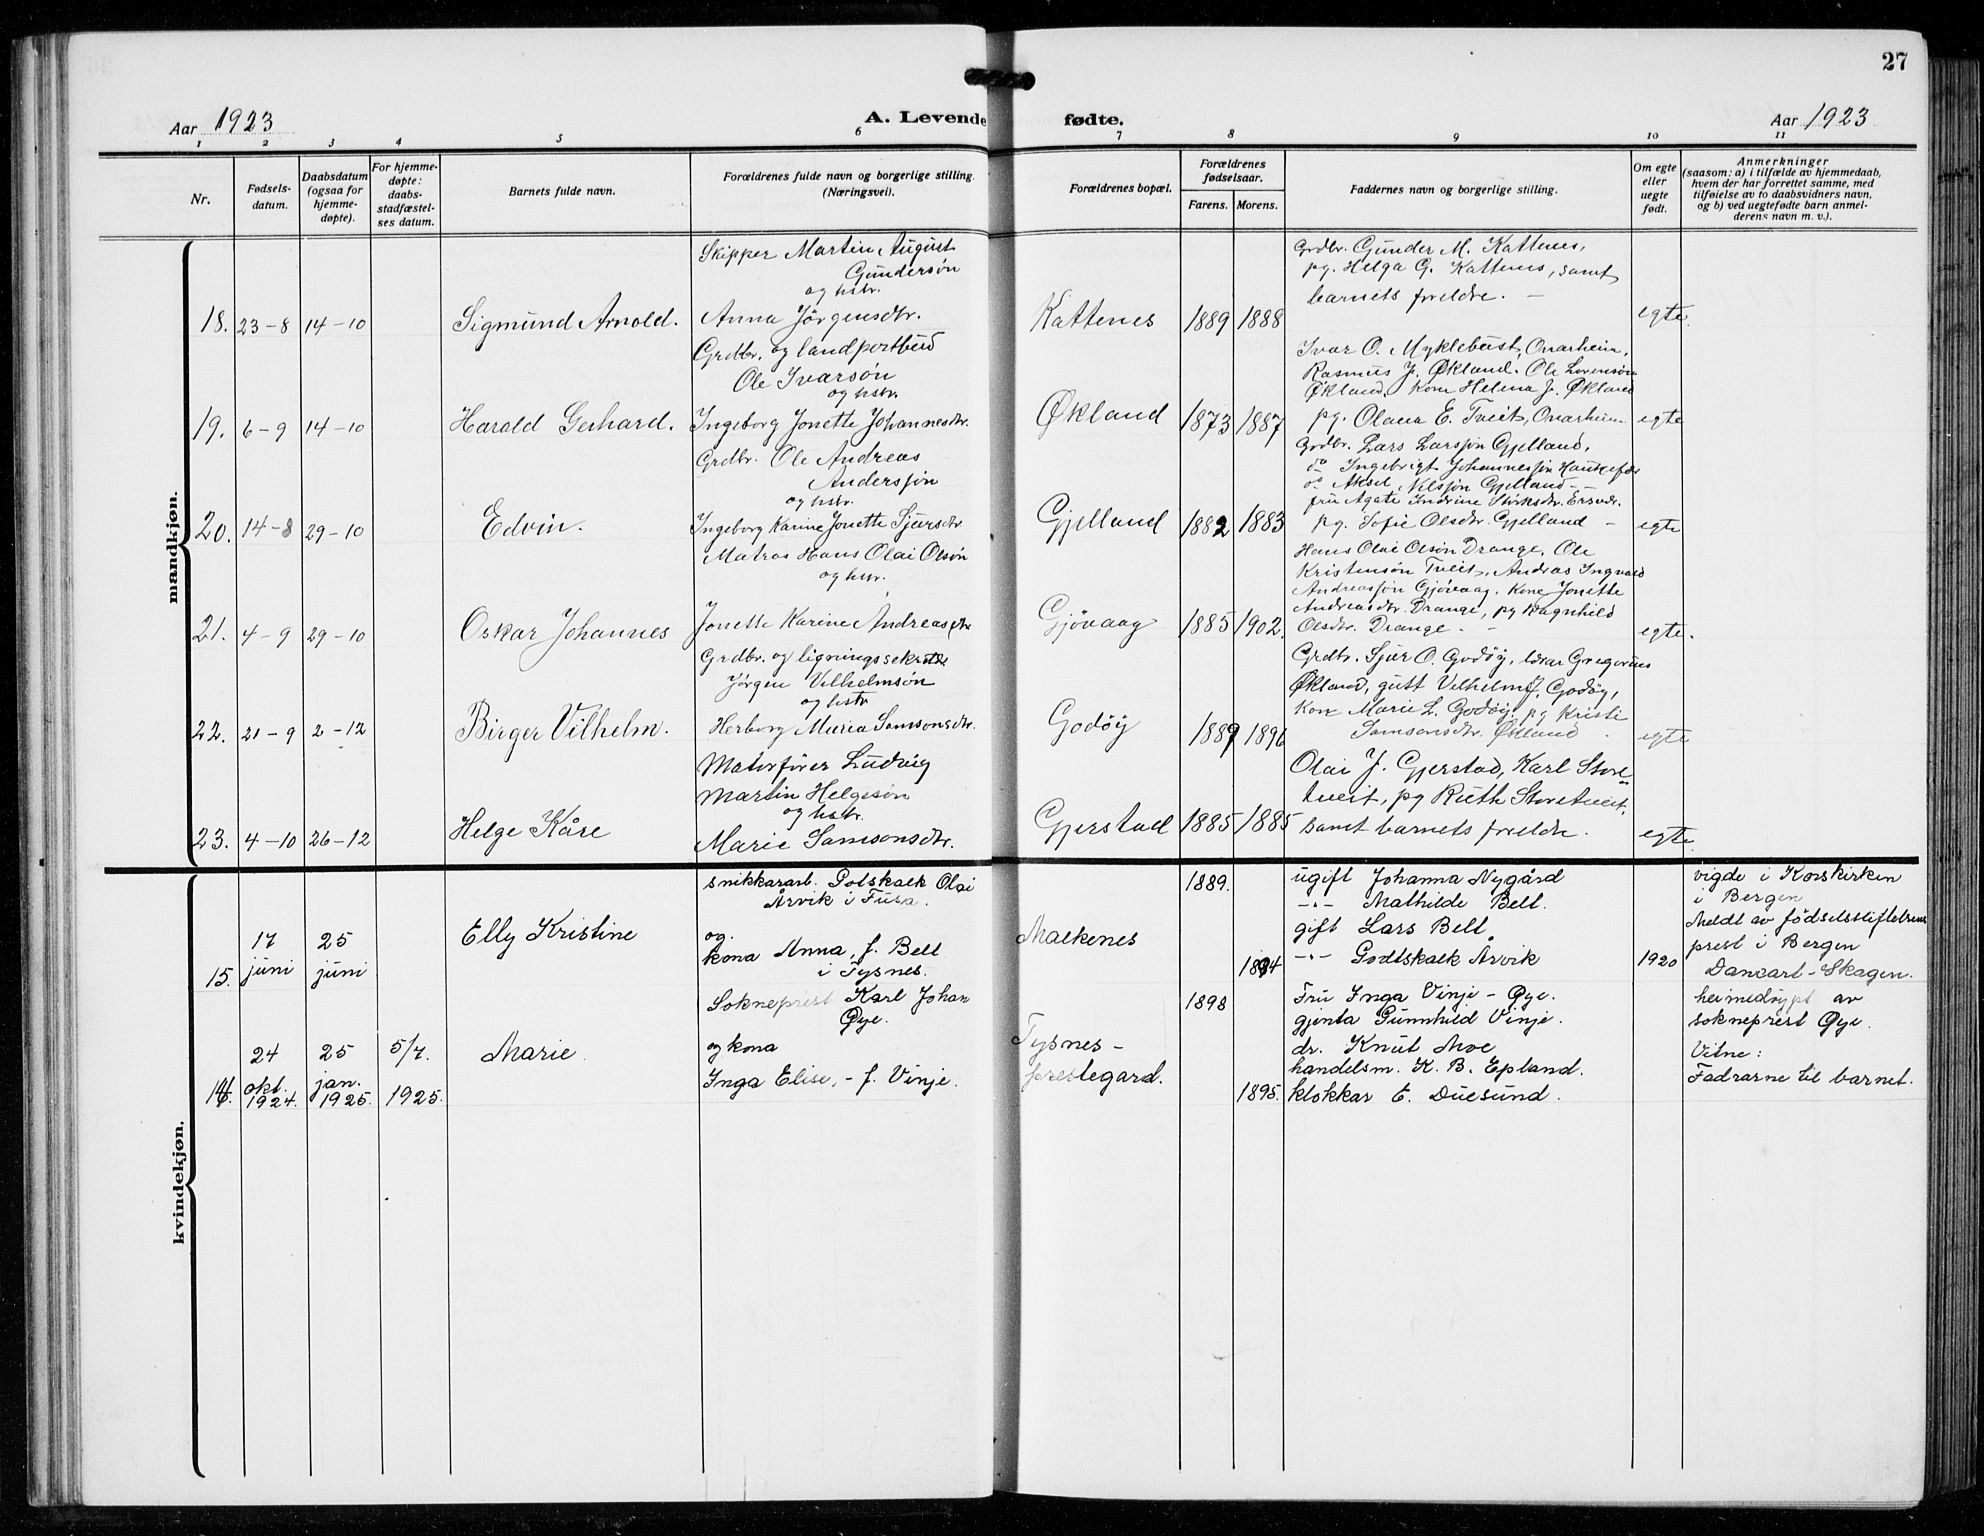 27
Aar 1923
A. Levende fødte.
Aar 1923
1 2 3 4 5 6 7 8 9 10 11
Nr.
Fødsels-
datum.
Daabsdatum
(ogsaa for
hjemme-
døpte).
For hjemme-
døpte:
daabs-
stadfæstel-
ses datum.
Barnets fulde navn.
Forældrenes fulde navn og borgerlige stilling.
(Næringsvei).
Forældrenes bopæl.
Forældrenes
fødselsaar.
Farens. Morens.
Faddernes navn og borgerlige stilling.
Om egte
eller
uegte
født.
Anmerkninger
(saasom: a) i tilfælde av hjemmedaab,
hvem der har forrettet samme, med
tilføielse av to daabsvidners navn,
og b) ved uegtefødte barn anmel-
derens navn m. v.).
mandkjøn.
18. 23-8 14-10
Sigmund Arnold.
Skipper Martin August
Gundersøn
og hstr.
Anna Jörgensdtr.
Kattenes 1889 1888
Grdbr. Gunder M. Kattenes,
pg. Helga G. Kattenes, samt
barnets foreldre. -
egte.
19. 6-9 14-10
Harald Gerhard.
Grdbr. og landpostbud
Ole Ivarsøn
og hstr.
Ingeborg Jonette Johannesdtr.
Økland 1873 1887
Ivar O. Myklebust, Onarheim,
Rasmus J. Økland. Ole Lorensøn
Økland. Kone Helena J. Økland
pg. Olana E. Tveit, Onarheim
egte
20. 14-8 29-10
Edvin.
Grdbr. Ole Andreas
Andersson
og hstr.
Ingeborg Karine Jonette Sjursdtr
Gjelland 1882 1883
Grdbr. Lars Larssøn Gjelland,
do Ingebrigt Johannessøn
do Aksel Nilssøn Gjelland -
fru Agate Indrine
pg. Sofie Olsdtr. Gjelland -
egte
21. 4-9 29-10
Oskar Johannes
Matros Hans Olai Olsøn
og hstr.
Jonette Karine Andreasdtr
Gjøvaag 1885 1902.
Hans Olai Olsøn Drange, Ole
Kristensøn Tveit, Andras Ingvald
Andreassøn Gjøvaag. Kone Jonette
Andreasdtr. Drange, pg Ragnhild
Olsdtr. Drange. -
egte.
22. 21-9 2-12
Birger Vilhelm.
Grdbr. og ligningssekretær
Jørgen Vilhelmsøn
og hstr
Herborg Maria Samsonsdtr.
Godøy 1889 1896
Grdbr. Sjur O. Godøy, lærar Gregorius
Økland, gutt Vilhelm J. Godøy,
Kone Marie L. Godøy, pg Kristi
Samsonsdtr. Økland.
egte
23. 4-10 26-12
Helge Kåre
Motorfører Ludvig
Martin Helgesøn
og hstr.
Marie Samsonsdtr.
Gjerstad 1885 1885
Olai J. Gjerstad, Karl Store-
tveit, pg Ruth Storetveit,
samt barnets foreldre.
egte.
kvindekjøn.
15. 17 juni 25 juni
Elly Kristine
snikkararb. Gotskalk Olai
Årvik i Fusa.
og
kona Anna, f. Belt
i Tysnes.
Malkenes
1889. 1894
ugift Johanna Nygård
-"- Mathilde Belt.
gift Lars Belt
-"- Godtskalk Årvik
1920
vigde i Korskirken
i Bergen
Meldt av fødselsstiftelsens
prest i Bergen
Danbart-Skagen.
14. 24 okt. 1924. 25 jan. 1925. 5/7. 1925.
Marie
Sokneprest Karl Johan
Øye.
og kona
Inga Elise, - f. Vinje.
Tysnes-
prestegard.
1898 1895.
Fru Inga Vinje - Øye.
gjenta Gunnhild Vinje.
dr. Knut Moe
handelsm. K. B. Epland.
klokkar E. Duesund.
heimedøypt av
sokneprest Øye.
Vitne:
Fadrarne til barnet.